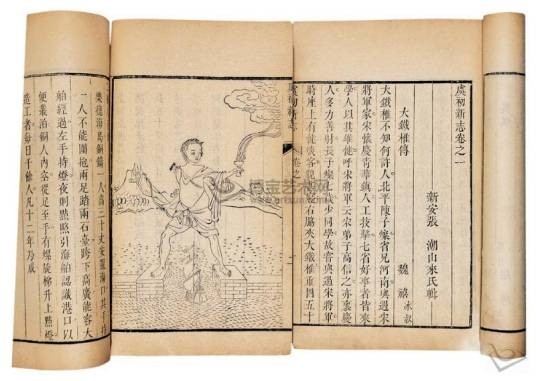 虞初新志卷之一
新安張 潮山來氏輯
大鐵椎傳
魏禧 冰叔
大鐵椎不知何許人北平陳子燦省兄河南與遇宋
將軍家宋懷慶青華鎮人工技擊七省好事者皆來
學人以其雄健呼宋將軍云宋弟子高信之亦懷慶
人多力善射長子燦七歲少同學故嘗與過宋將軍
時座上有健啖客貌甚寢右脅夾大鐵椎重四五十
虞初新志
卷之一
樂德海島銅鑄一人高三十丈安置海口其手指
一人不能圍抱兩足踏兩石臺跨下高廣能容大
舶經過左手持燈夜則點照引海舶認識港口以
便叢泊銅人內空從足至手有螺旋梯升上點燈
造工者每日千餘人凡十二年乃成
博宝艺术网